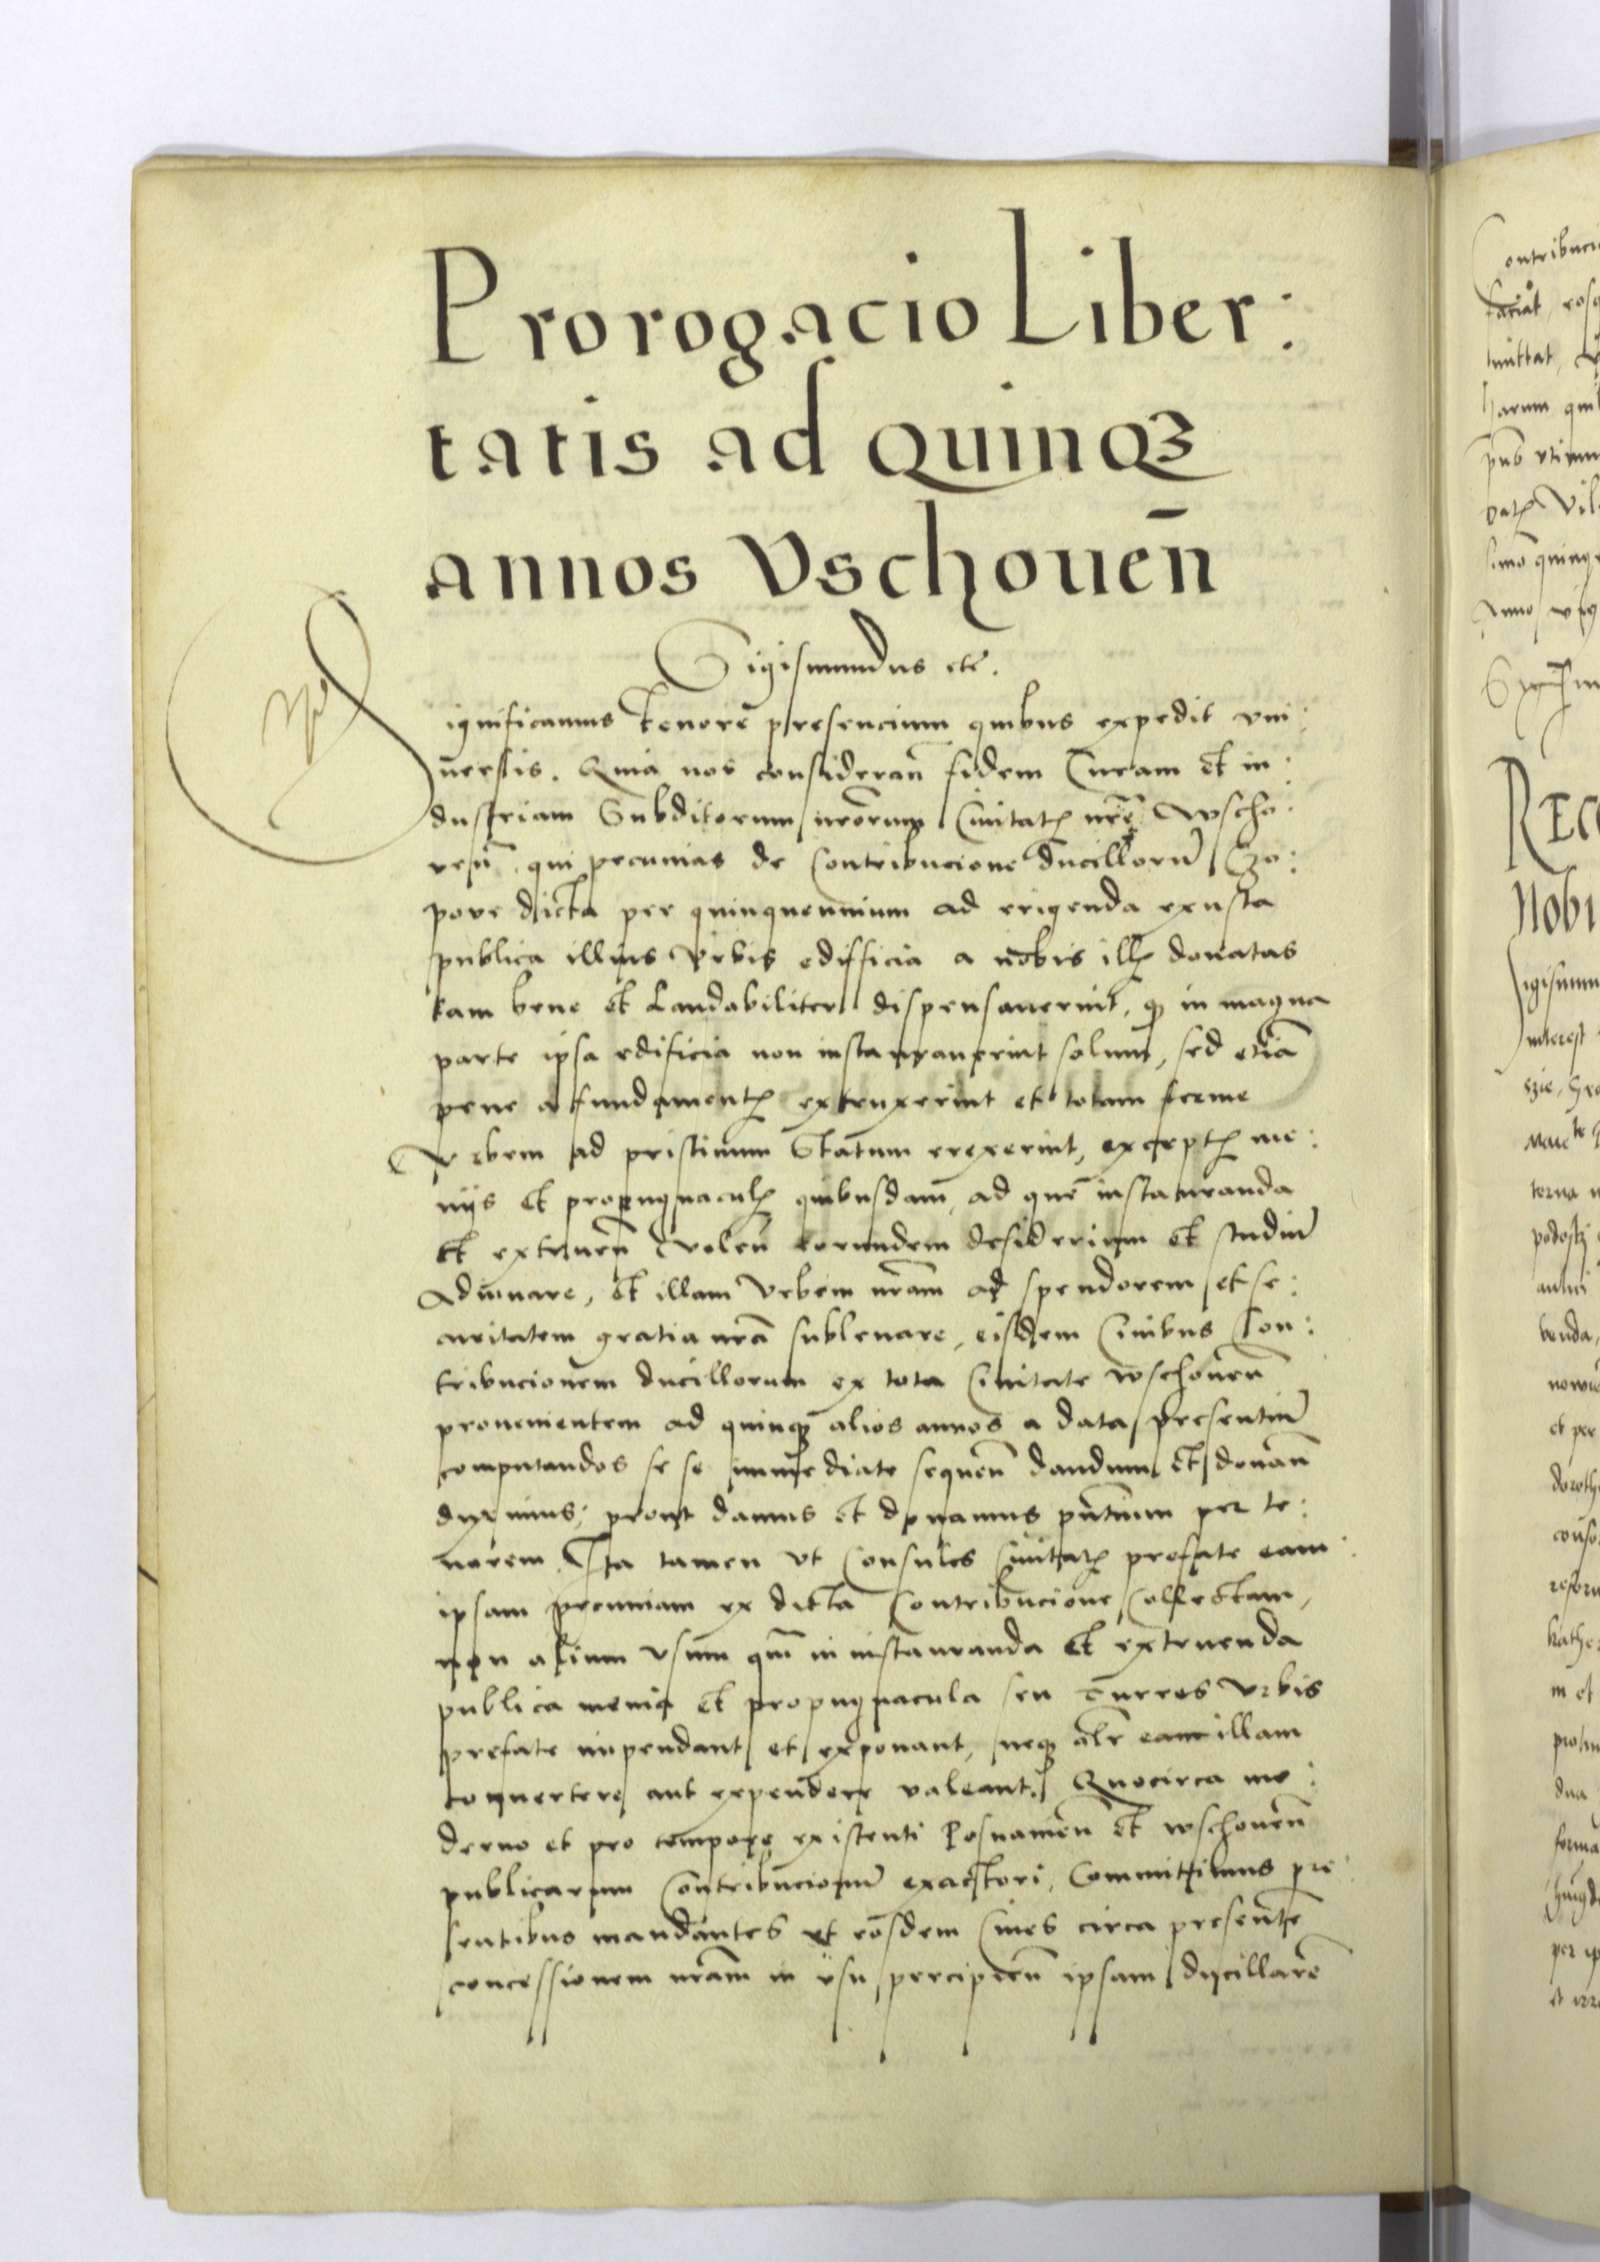 Prorogacio Liber:
tatis ad quinqꝫ
annos Vschoueñ
Sigismundus etc̃.
Significamus tenorẽ presencium quibus expedit vni:
uersis. Quia nos consideran̄ fidem Curam et in:
dustriam Subditorum nrõrum Ciuitatꝭ nrẽ Wscho:
ueñ. qui pecunias de Contribucione ducillorũ Czo:
powe dicta per quinquennium ad erigenda exusta
publica illius Vrbis edifficia a nobis illꝭ donatas
tam bene et Laudabiliter dispensauerint, qꝫ in magna
parte ipsa edificia non instaurauerint solum, sed etiã
pene a fundamentꝭ extruxerint et totam ferme
Vrbem ad pristinum Statum erexerint, exceptꝭ me:
niis et propugnaculꝭ quibusdam, ad quẽ instauranda
et extruen̄ Volen̄ eorundem desiderium et studiũ
Adiuuare, et illam Vrbem nrãm ad spendorem et se:
curitatem gratia nrã subleuare, eisdem Ciuibus Con:
tribucionem ducillorum ex tota Ciuitate Wschouen̄
prouenientem ad quinqꝫ alios annos a data presentiũ
computandos se se immediate sequen̄ dandum et donan̄
duximus; prout damus et donamus pñtium per te:
norem. Ita tamen vt Consules Ciuitatꝭ prefate eam
ipsam pecuniam ex dicta Contribucione Collectam,
non alium vsum qm̃ in instauranda et extruenda
publica menia et propugnacula seu turres Vrbis
prefate impendant et exponant, neqꝫ alr̃ eam illam
conuertere aut expendere valeant. Quocirca mo:
derno et pro tempore existenti Posnanien̄ et Wschouen̄
publicarum Contribucionũ exactori, Committimus pre
sentibus mandantes vt eosdem Ciues circa presentẽ
concessionem nrãm in vsu percipien̄ ipsam ducillarẽ